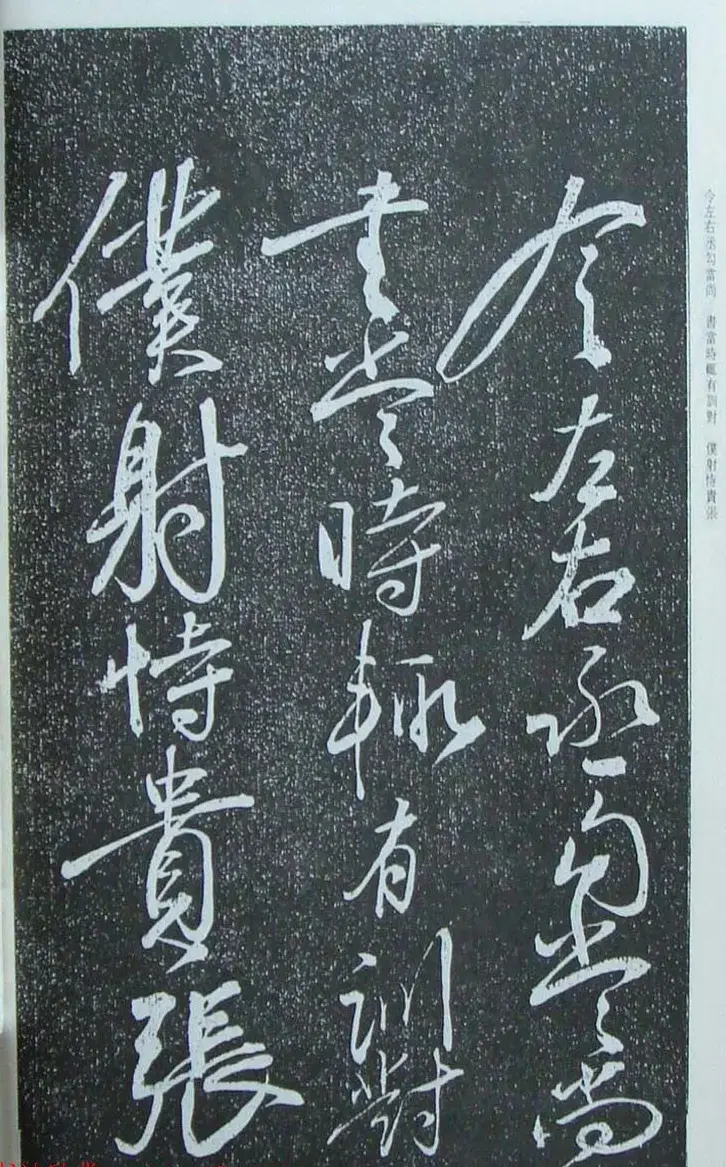 令左右丞勾當尚
書當時輒有訓對
僕射恃貴張
令左右丞勾當尚 書當時輒有訓對 僕射恃貴張